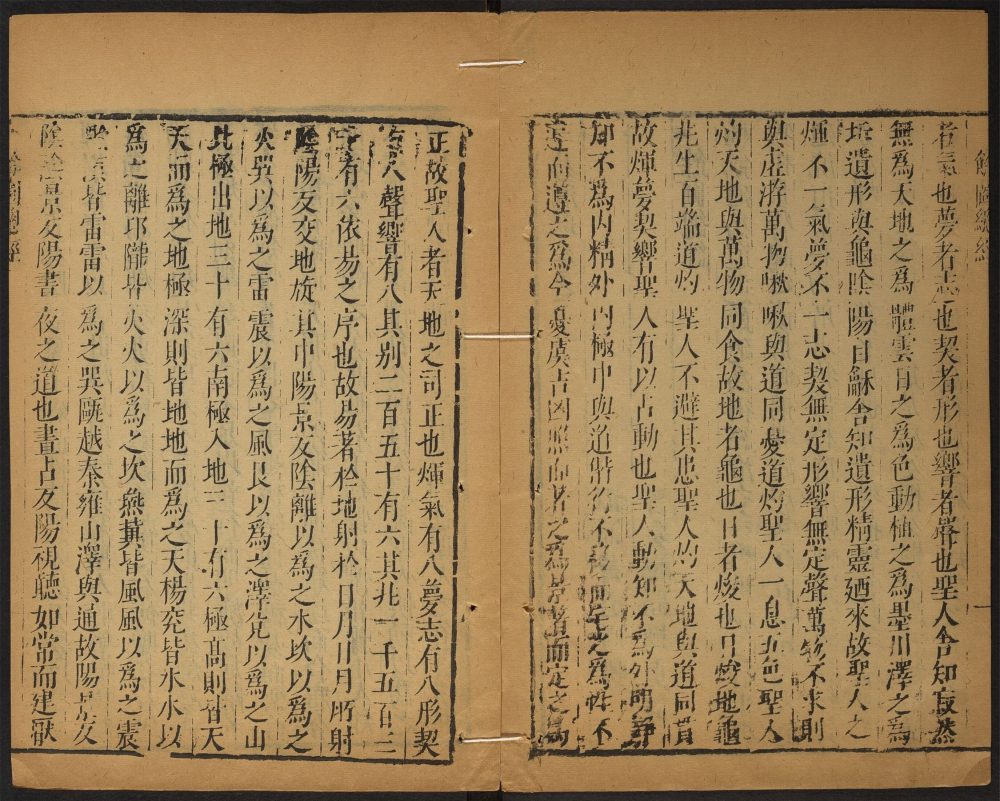 者氣也夢者志也契者形也響者聲也聖人舍知寂然
無爲天地之爲體雲日之爲色動植之爲墨川澤之爲
坼遺形與龜陰陽自龢舍知遺形精靈廼來故聖人之
煇不一氣夢不一志契無定形響無定聲萬物不求則
與虛游萬物啾啾與道同憂道灼聖人一息五色聖人
灼天地與萬物同食故地者龜也日者焌也日焌地龜
兆生百端道灼聖人不避其患聖人灼天地與道同貫
故煇夢契響聖人有以占動也聖人動知不爲外明靜
知不爲内精外内極中與道偕
而遵之爲令憂虞吉凶照而
正故聖人者天地之司正也煇氣有八夢志有八形契
有八聲響有八其別二百五十有六其兆一千五百三
有六依易之序也故易著於地射於日月日月所射
陰陽反交地旋其中陽景反陰離以爲之水坎以爲之
火巽以爲之雷震以爲之風艮以爲之澤兊以爲之山
北極出地三十有六南極入地三十有六極髙則皆天
天而爲之地極深則皆地地而爲之天楊兖皆水水以
爲之離邛隴皆火火以爲之坎燕冀皆風風以爲之震
皆雷雷以爲之巽甌越秦雍山澤與通故陽景反
陰陰景反陽晝夜之道也晝占反陽視聽如常而建厭